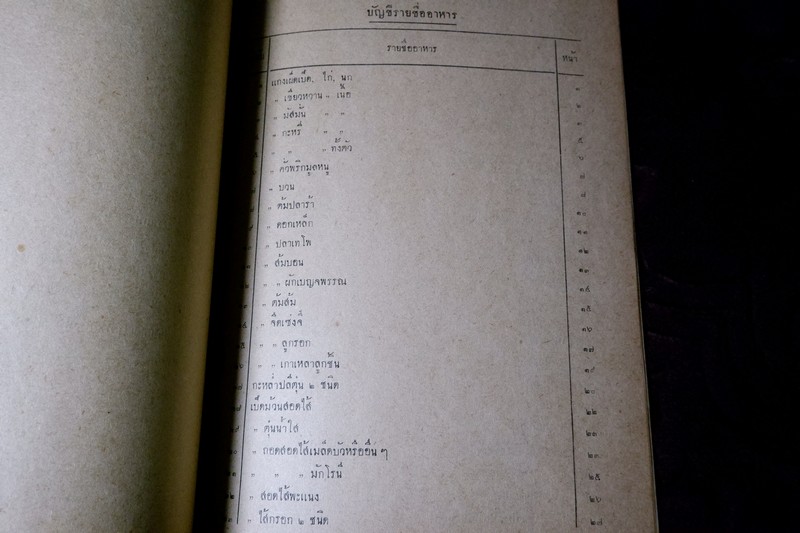 บัญชีรายชื่ออาหาร
รายชื่ออาหาร หน้า
แกงเผ็ดเป็ด, ไก่, นก ๑
" เขียวหวาน " เนื้อ ๒
" มัสมั่น " " ๓
" กะหรี่ " " ๕
" " " ทั้งตัว ๖
" คั่วพริกมูลหนู ๗
" บวน ๗
" ต้มปลาร้า ๑๐
" ดอกเหล็ก ๑๑
" ปลาเทโพ ๑๒
" ส้มบอน ๑๓
" " ผักเบญจพรรณ ๑๔
" ต้มส้ม ๑๕
" จืดเซ่งจี๊ ๑๖
" " ลูกรอก ๑๗
" " เกาเหลาลูกชิ้น ๑๙
กะหล่ำปลีตุ๋น ๒ ชนิด ๒๐
เป็ดม้วนสอดไส้ ๒๒
" ตุ๋นน้ำใส ๒๓
" ถอดสอดไส้เมล็ดบัวหรืออื่น ๆ ๒๓
" " " มักโรนี ๒๕
" สอดไส้พะแนง ๒๖
" ไส้กรอก ๒ ชนิด ๒๗